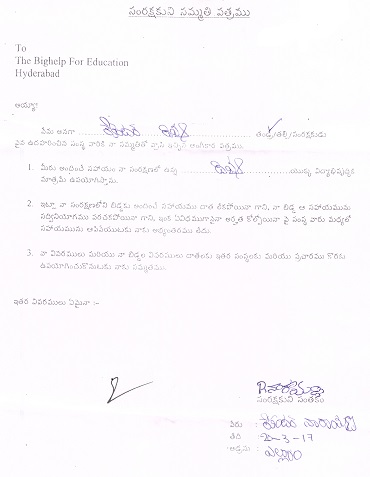 సంరక్షకుని సమ్మతి పత్రము
To
The Bighelp For Education
Hyderabad
అయ్యా!
నేను అనగా తండ్రి/తల్లి/సంరక్షకుడు
పైన ఉదహరించిన సంస్థ వారికి నా సమ్మతితో వ్రాసి ఇచ్చిన అంగీకార పత్రము.
1. మీరు అందించే సహాయం నా సంరక్షణలో ఉన్న యొక్క విద్యాభివృద్ధికి
మాత్రమే ఉపయోగిస్తాను.
2. ఇట్లా నా సంరక్షణలోని బిడ్డకు అందించే సహాయము దాత లేకపోయినా గాని, నా బిడ్డ ఆ సహాయమును
సద్వినియోగము పరచకపోయినా గాని, ఇంక ఏవిధముగానైనా అర్హత కోల్పోయినా పై సంస్థ వారు మధ్యలో
సహాయమును ఆపివేయుటకు నాకు అభ్యంతరము లేదు.
3. నా వివరములు మరియు నా బిడ్డల వివరములు దాతలకు ఇతర సంస్థలకు మరియు ప్రచారము కొరకు
ఉపయోగించుకొనుటకు నాకు సమ్మతము.
ఇతర వివరములు ఏమైనా :-
సంరక్షకుని సంతకము
పేరు : నారాయణ
తేది : 2-3-17
అడ్రసు :